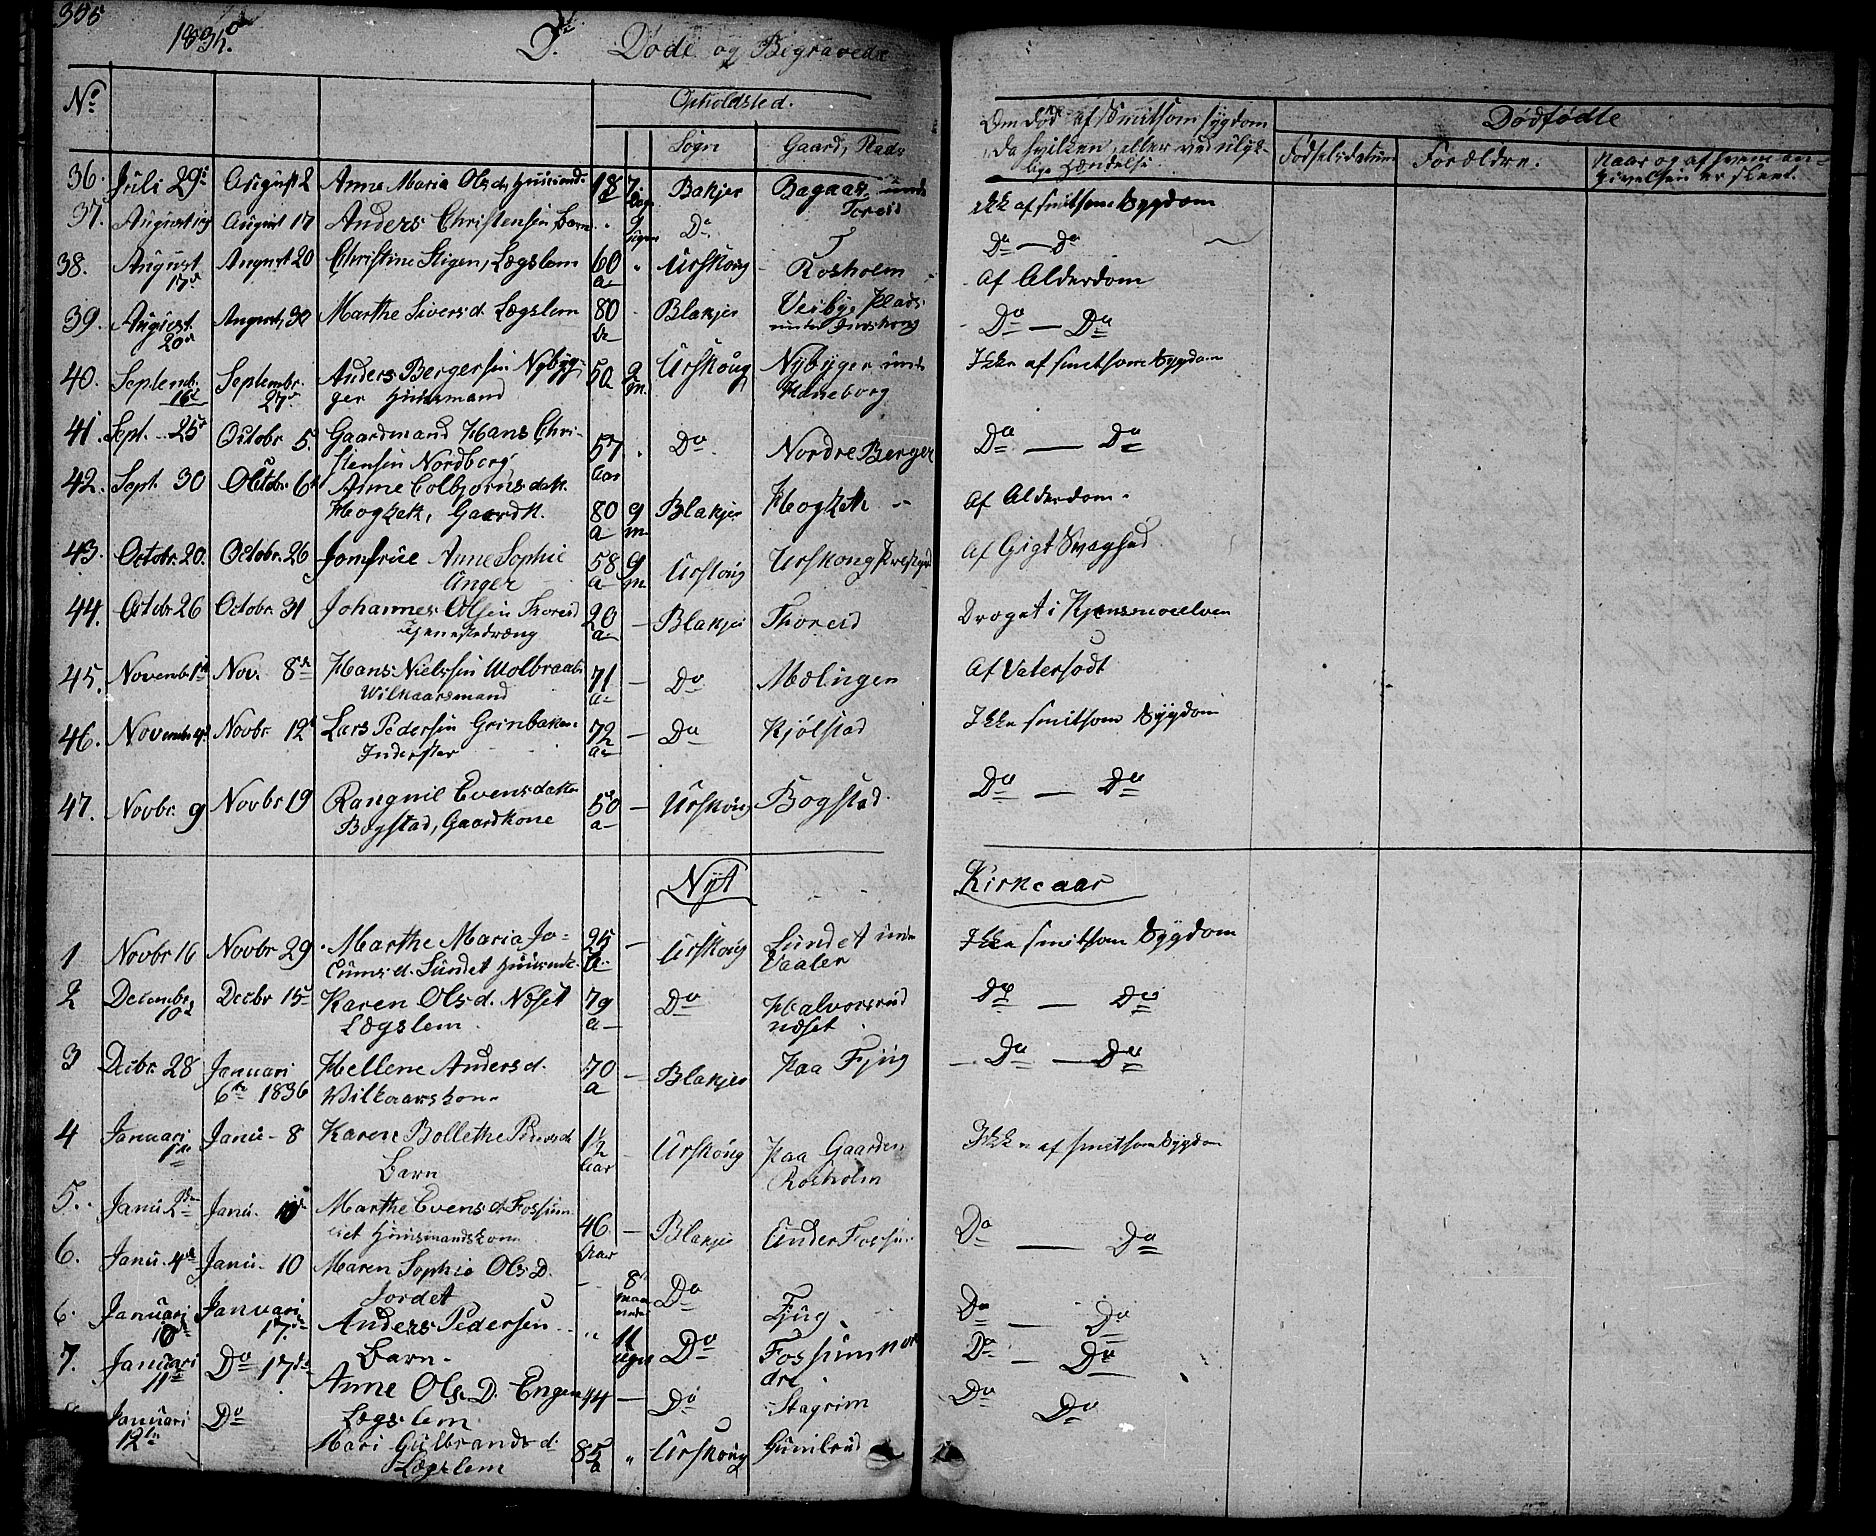 1835.
Døde og Begravede
No
Opholdsted.
Sogn
Gaard, Plads
Om død af Smitsom sygdom
da hvilken, eller ved ulyk-
lige Hændelse.
Dødfødte
Fødselsdatum
Forældre.
Naar og af hvem an-
givelsen er skeet.
36. Juli 29 August 2 Anne Maria Olsd. 18 7 Bakjer Bagaas under ikke af smitsom Sygdom
Toreid
37. August 17 Anders Christensen Barn " 9 uger Do Do — Do
38. August August 20 Christine Stigen, Lægslem 60 " Urskoug Rosholm Af Alderdom
17de a
39. August August 30 Marthe Siversd. Lægslem 80 Blakjer Veibye Plads Do — Do
20de
40. Septemb. Septembr. Anders Bergersen Nybyg- 50 2 Urskoug Nybyger under Ikke af smitsom Sygdom
16de 27de ger Huusmand m. Haneborg
41. Sept. 25 Octobr 5 Gaardmand Hans Chri- 57 Do Nordre Berger Do — Do
stensen Nordberg, aar
42. Sept. 30 Octobr. 6 Anne Colbjørnsdatt. Af Alderdom.
Gaardk. 80 9 Blakjer
a m
43. Octobr. 20. Octobr. 26 Jomfrue Anne Sophie 58 9 Urskoug Urskoug Af Gigt Svaghed
Anger a m
44. Octobr 26 Octobr. 31 Johannes Olsen Thoreid 20 — Blakjer Thoreid
Tjenestedræng a
45. Novemb. 1 Nov. 8de Hans Nielssen 71 — Do Mælingen Af Vatersodt
Wilkaarsmand a
46. Novemb. 4 Novbr 12 Lars Pedersen Grinbaken 72 — Do Kjølstad Ikke smitsom Sygdom
Inderster a
47. Novbr. 9 Novbr 19 Rangnil Evensdatter 50 — Urskoug Bogstad. Do — Do
Bogstad, Gaardkone a
Nyt Kirkeaar
1 Novbr 16 Novbr 29 Marthe Maria Jo- 25 — Urskoug Sundet under Ikke smitsom Sygdom
Sundet a Vaaler
2 Decembr. Decbr 15 Karen Olsd. Næset 79 Do Halvorsrud Do — Do
10de Lægslem. a næset
3 Decbr. 28 Januari Hellene Andersd. 70 — Blakjer Paa Fjug Do — Do
6te 1836 Wilkaarskone a
4 Januari Janu- 8 Karen Bollethe Pedersd. 1½ — Urskoug Paa Gaarden Ikke af smitsom Sygdom
1de Barn aar Rosholm
5. Janu 2den Janu- 10 Marthe Evensd. Fossum 46 — Blakjer Under Fossum Do — Do
eiet Huusmandskone aar
6. Janu. 4de Janu- 10 Maren Sophie Ols D. 8 Do
Jordet maaneder Fjug Do — Do
6. Januari Januari Anders Pedersen " 11 Do Fossum nor Do — Do
10de 17de Barn. uger dre
7. Januari Do 17de Anne Ols D. Engen 44 — Do Stagrim Do Do
11te Lægslem.
Januari Do Mari Gulbrandsd. 85 " Urskoug
12te Lægslem a